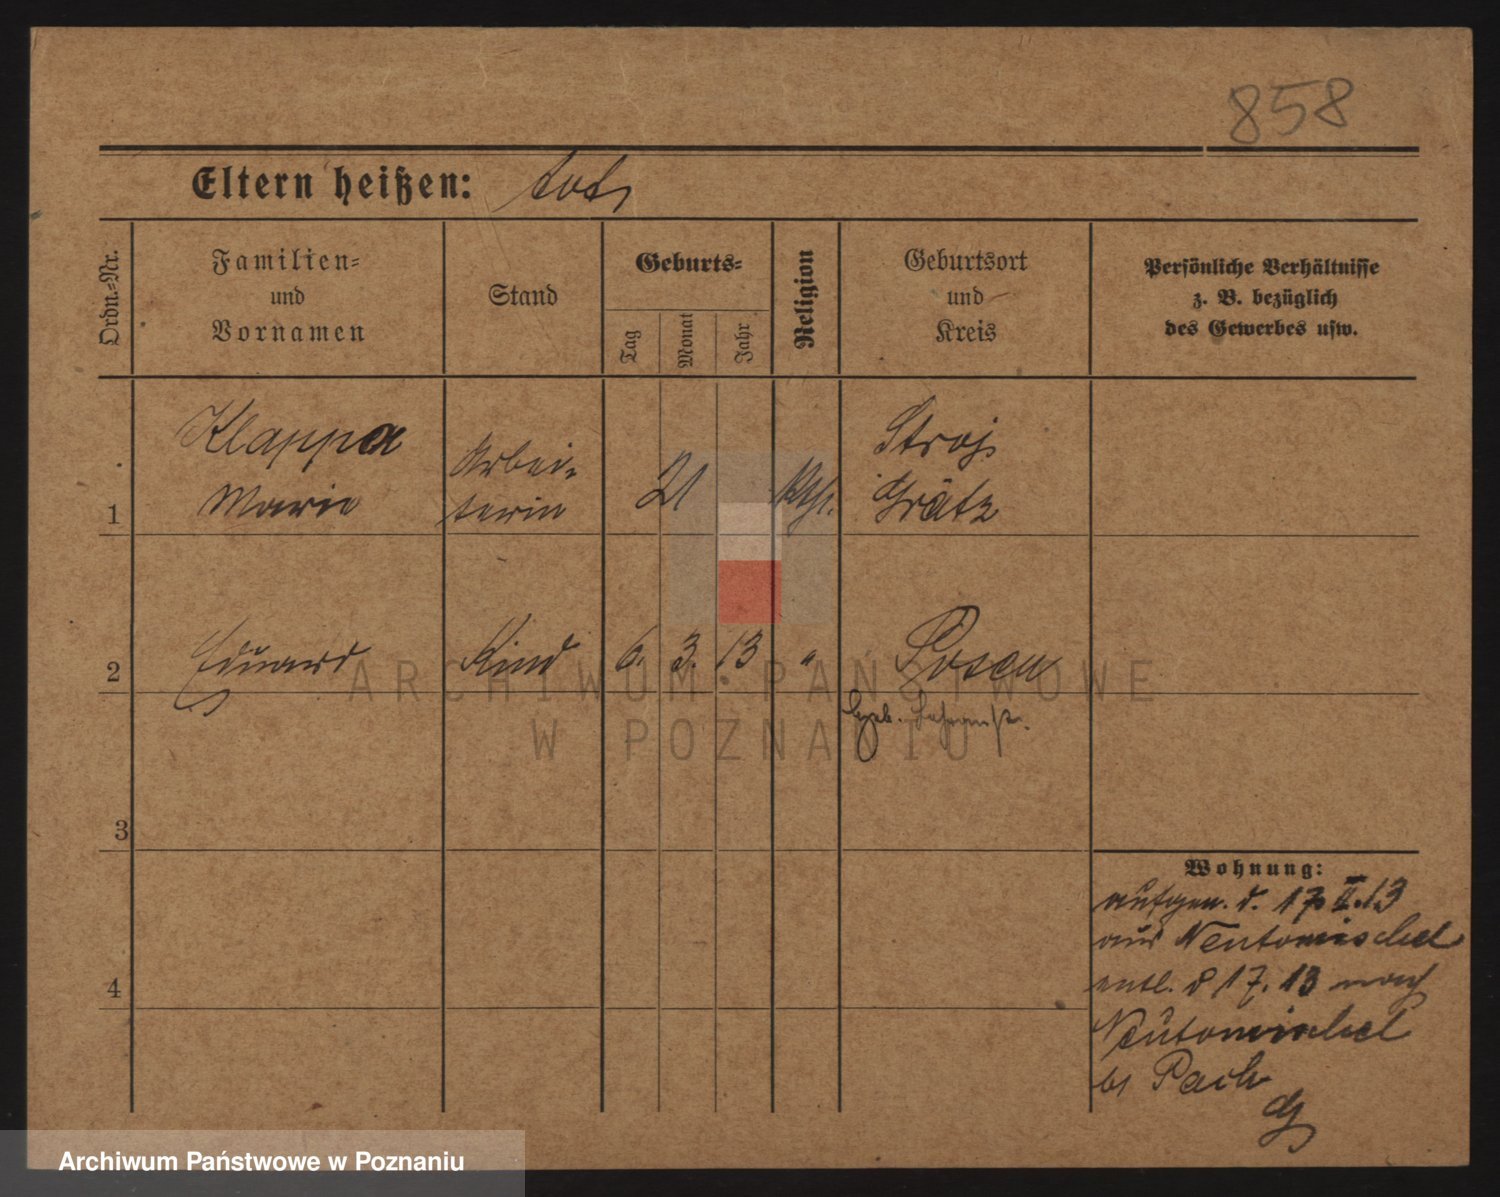 858
Eltern heißen: tot
Ordn.-Nr.
Familien-
und
Vornamen
Stand
Geburts-
Tag
Monat
Jahr
Religion
Geburtsort
und
Kreis
Persönliche Verhältnisse
z. B. bezüglich
des Gewerbes usw.
1
Klappa
Marie
Arbei-
terin
21
kth.
Stroj
Grätz
2
Eduard
Kind
6. 3. 13
"
Posen
3
4
Wohnung:
aufgen. d. 17 II. 13
aus Neutomischel
entl. 8 17. 13 nach
Neutomischel
ARCHIWUM PAŃSTWOWE
W POZNANIU
Archiwum Państwowe w Poznaniu